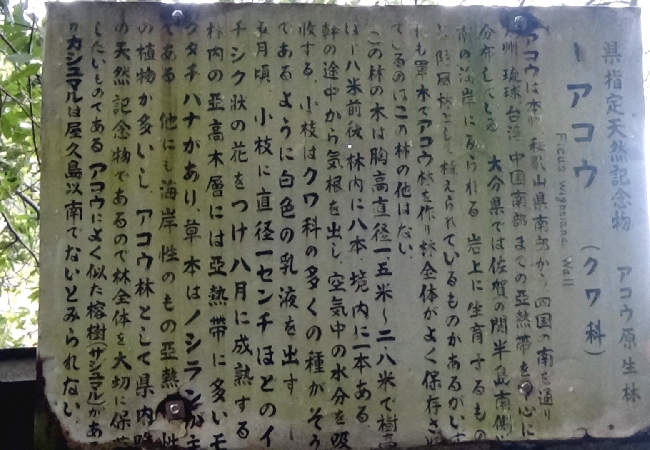 県指定天然記念物　アコウ原生林
アコウ（クワ科）
Ficus wightiana Wall
アコウは本州 和歌山県南部から 四国の南を通り
九州 琉球 台湾 中国南部までの亜熱帯を中心に
分布している 大分県では佐賀の関半島南側
の海岸に見られる 岩上に生育するもの
植えられているものがあるが
アコウ林を作り林全体がよく保存さ
ているのはこの林の他はない
この林の木は胸高直径一.五米〜二.八米で樹高
八米前後 林内に八本 境内に一本ある
幹の途中から気根を出し 空気中の水分を吸
収する 小枝はクワ科の多くの種がそう
であるように白色の乳液を出す
五月頃 小枝に直径一センチほどのイ
チジク状の花をつけ八月に成熟する
林内の亜高木層には亜熱帯に多いモ
クタチバナがあり草本はノシランが主
である 他にも海岸性のもの亜熱
の植物が多いし、アコウ林として県内唯
の天然記念物であるので林全体を大切に保護
したいものである アコウによく似た榕樹（ガジュマル）があ
ガジュマルは屋久島以南でないとみられない